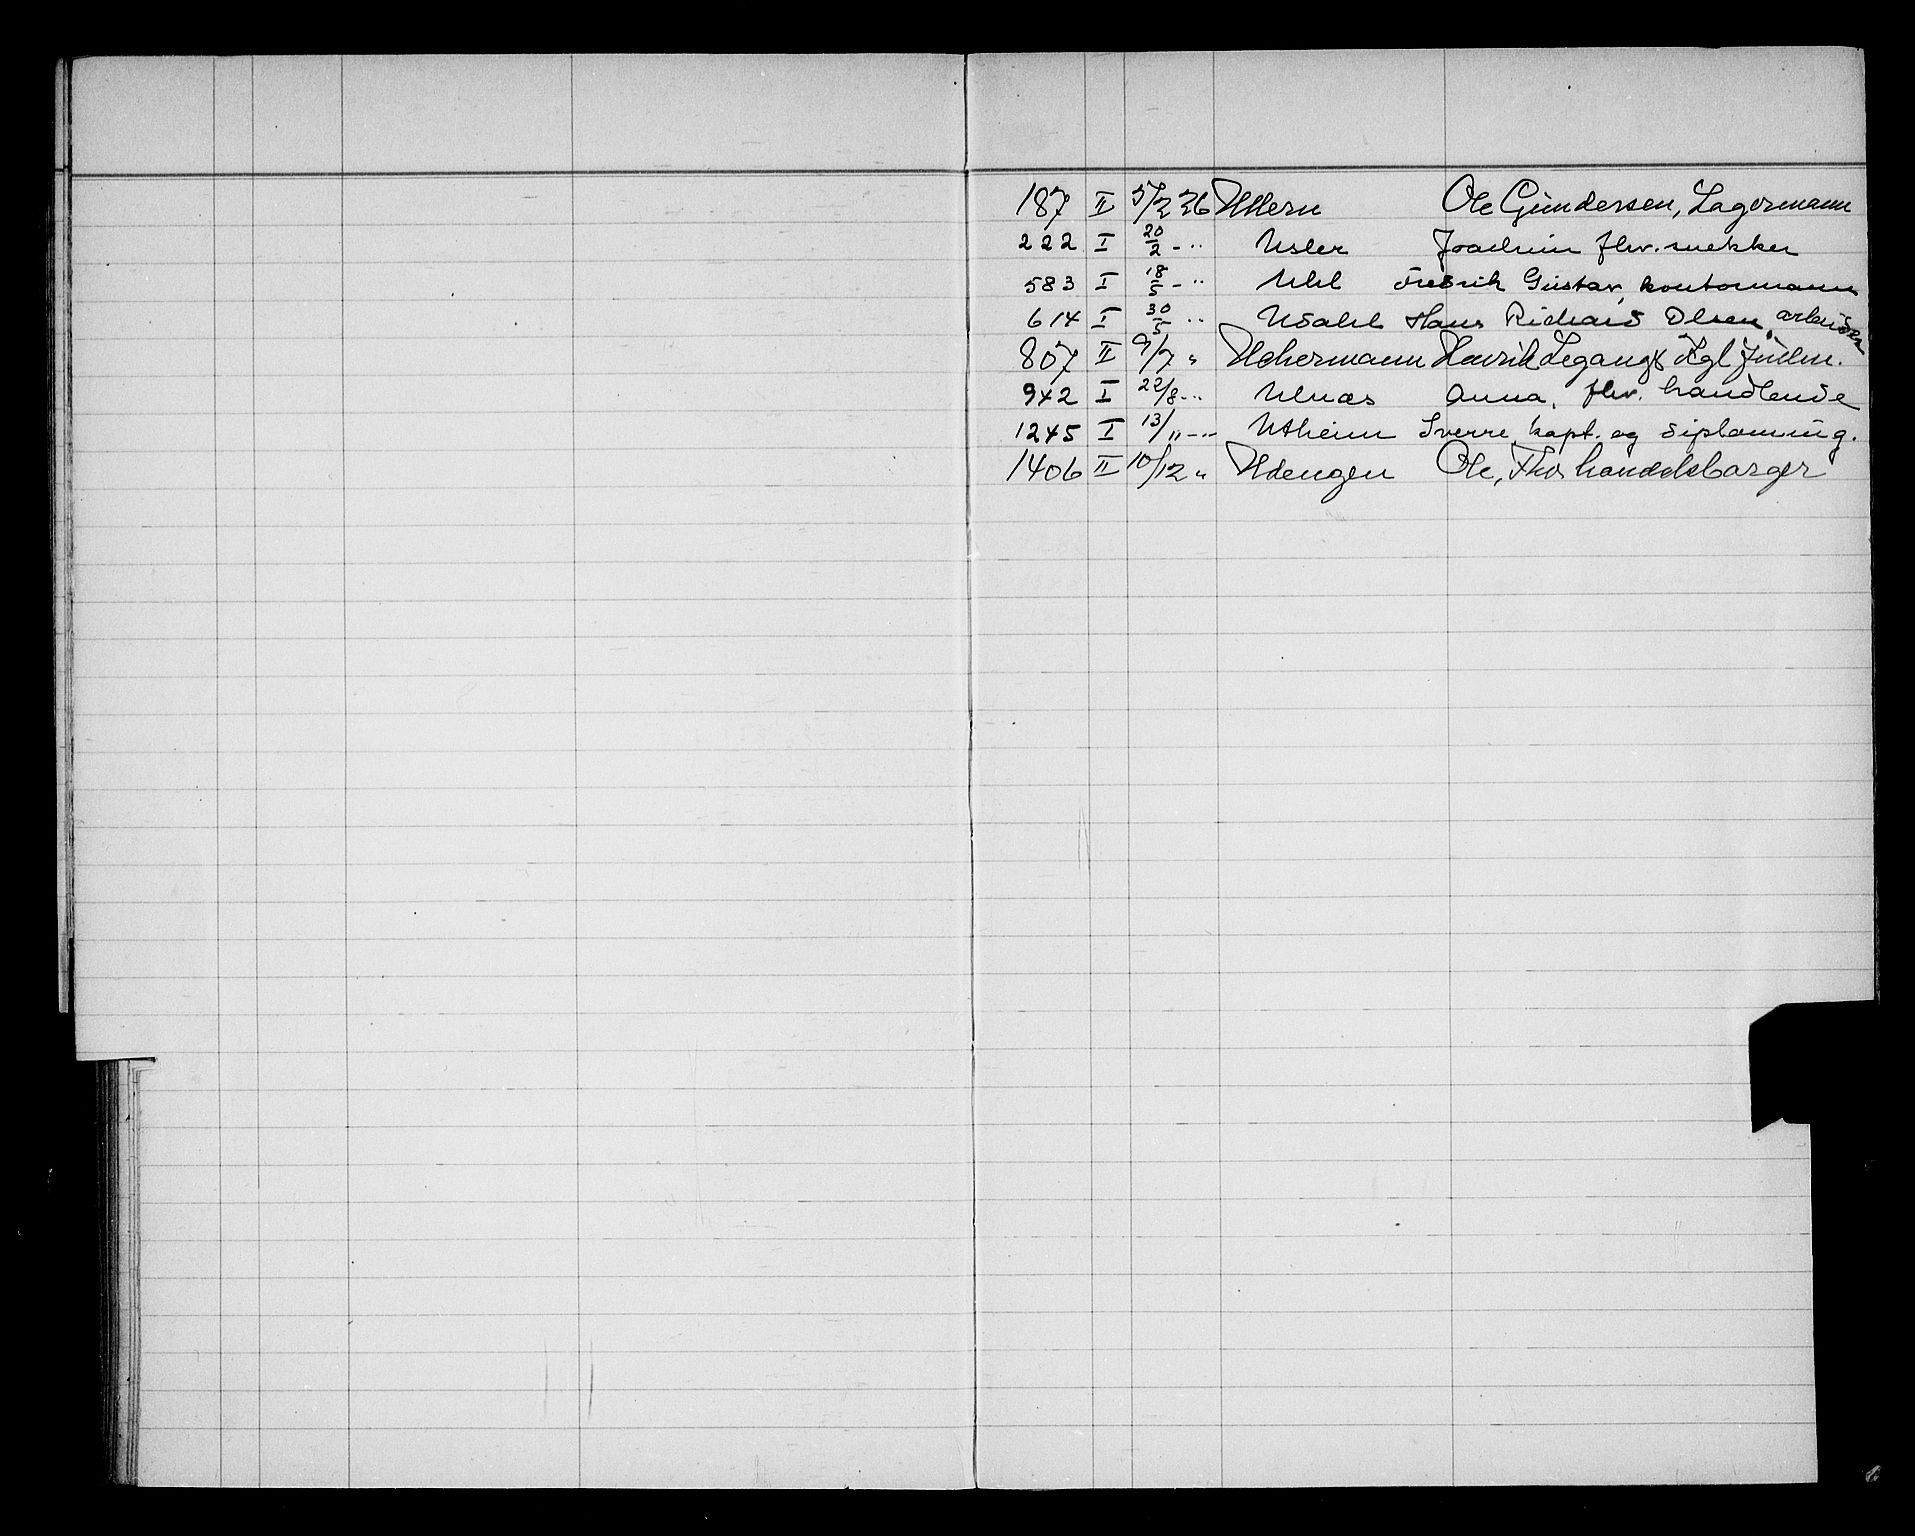 187 II 5/2 26 Utlern Ole Gundersen, Lagermann
222 I 20/2 - " Usler Joachim fhv. snekker
583 I 18/5 - " Uhl Fredrik Gustav, kontormann
614 I 30/5 " Udahl Hans Richard Olsen, arbeider
807 II 9/7 " Uchermann Henrik Legangs Kgl
942 I 22/8 - " Ulnæs Anna, fhv. handlende
1245 I 13/11 - " Utheim Sverre, kapt. og diploming.
1406 II 10/12 " Udengen Ole, Thv. handelsborger